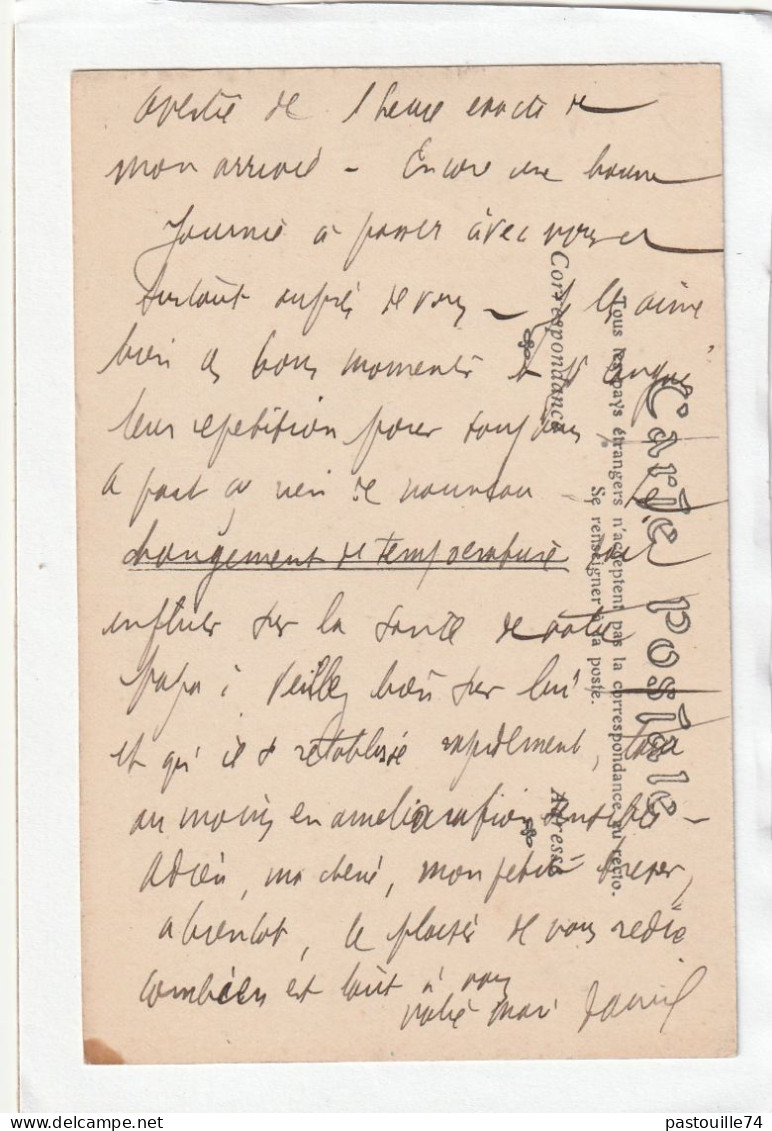 avertie de l'heure exacte de
mon arrivée - Encore une bonne
Journée à passer avec vous et
surtout auprès de vous - J les aime
bien ces bons moments &
leur repetition pour toujours
A part ça rien de nouveau Le
changement de temperature
influer sur la santé de votre
papa ; Veillez bien sur lui
et qu'il se retablisse rapidement,
au moins en amelioration sensible -
Adieu, ma cherie, mon petit tresor,
a bientot, le plaisir de vous redire
combien est tout à vous
votre mari
Carte postale
Tous les pays étrangers n'acceptent pas la correspondance au recto.
Se renseigner à la poste.
Correspondance
Adresse
pastouille74